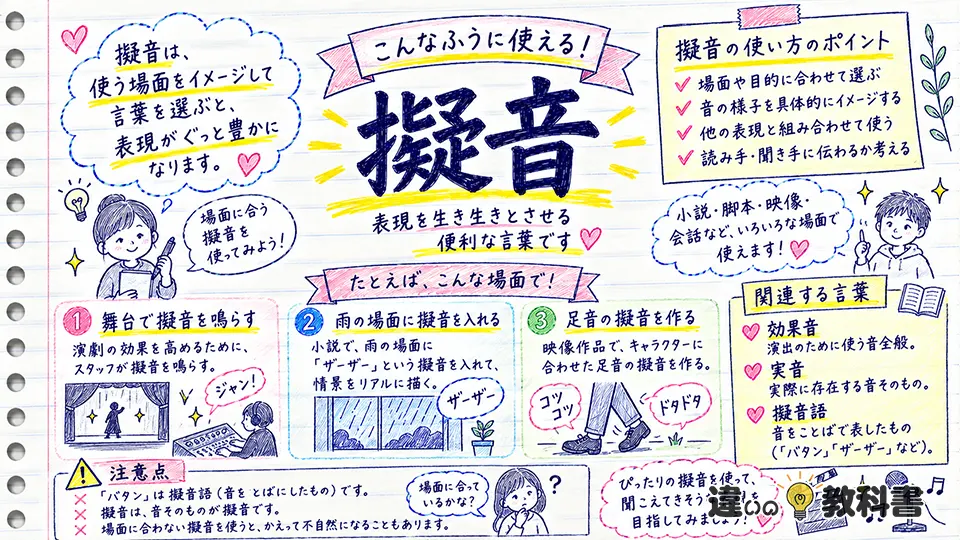 こんなふうに使える!
擬音
表現を生き生きとさせる
便利な言葉です
擬音は、
使う場面をイメージして
言葉を選ぶと、
表現がぐっと豊かに
なります。
場面に合う
擬音を
使ってみよう!
擬音の使い方のポイント
場面や目的に合わせて選ぶ
音の様子を具体的にイメージする
他の表現と組み合わせて使う
読み手・聞き手に伝わるか考える
小説・脚本・映像・
会話など、いろいろな場面で
使えます!
たとえば、こんな場面で!
1 舞台で擬音を鳴らす
演劇の効果を高めるために、
スタッフが擬音を鳴らす。
ジャン!
2 雨の場面に擬音を入れる
小説で、雨の場面に
「ザーザー」という擬音を入れて、
情景をリアルに描く。
ザーザー
3 足音の擬音を作る
映像作品で、キャラクターに
合わせた足音の擬音を作る。
コツ
コツ
ドタドタ
関連する言葉
効果音
演出のために使う音全般。
実音
実際に存在する音そのもの。
擬音語
音をことばで表したもの
(「バタン」「ザーザー」など)。
注意点
「バタン」は擬音語(音を とばにしたもの)です。
擬音は、音そのものが擬音です。
場面に合わない擬音を使うと、かえって不自然になることもあります。
場面に合って
いるかな?
?
ぴったりの擬音を使って、
聞こえてきそう
目指してみましょう!
違いの教科書